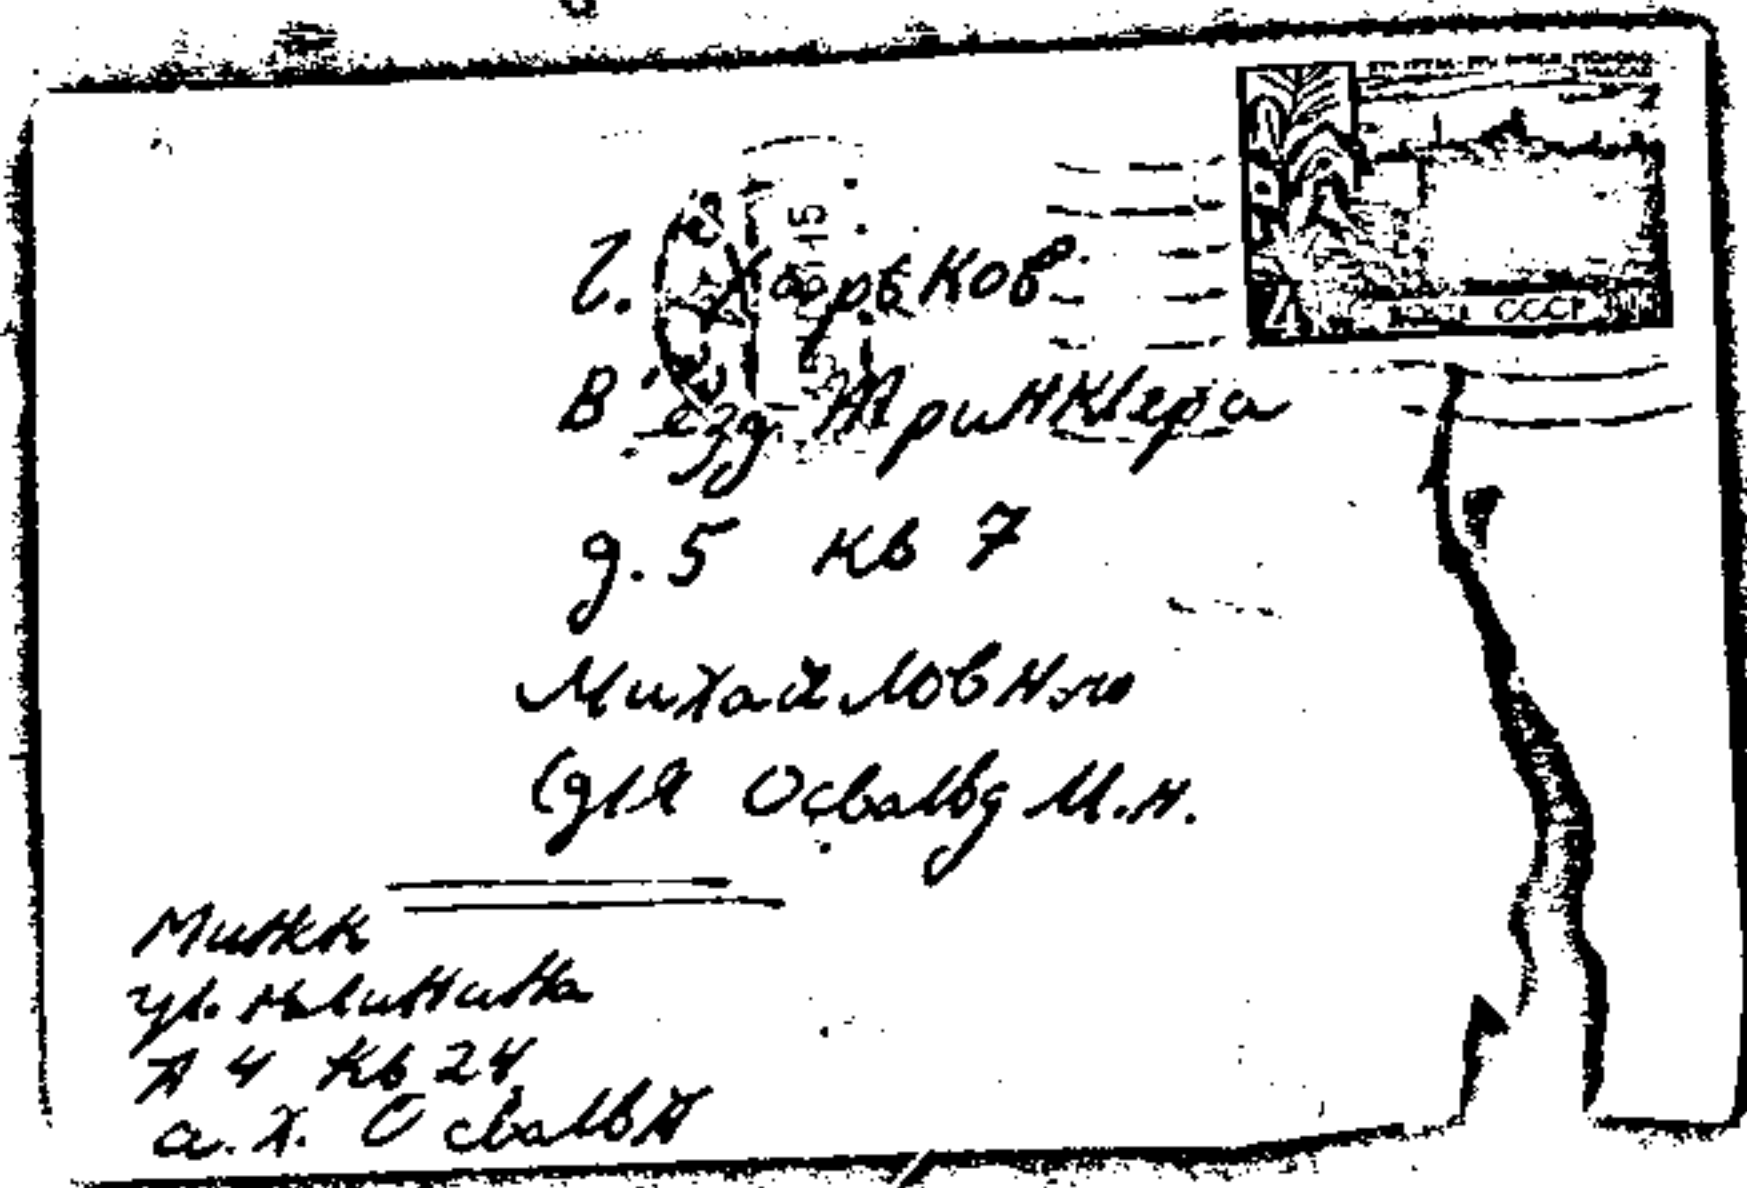 ПОЧТА СССР
4
15
г. Харьков
В'езд Тринклера
д. 5 кв 7
Михайловню
(для Освальд М.Н.
Минкк
ул. Калинина
Д 4 кв 24
а. Х. Освальд